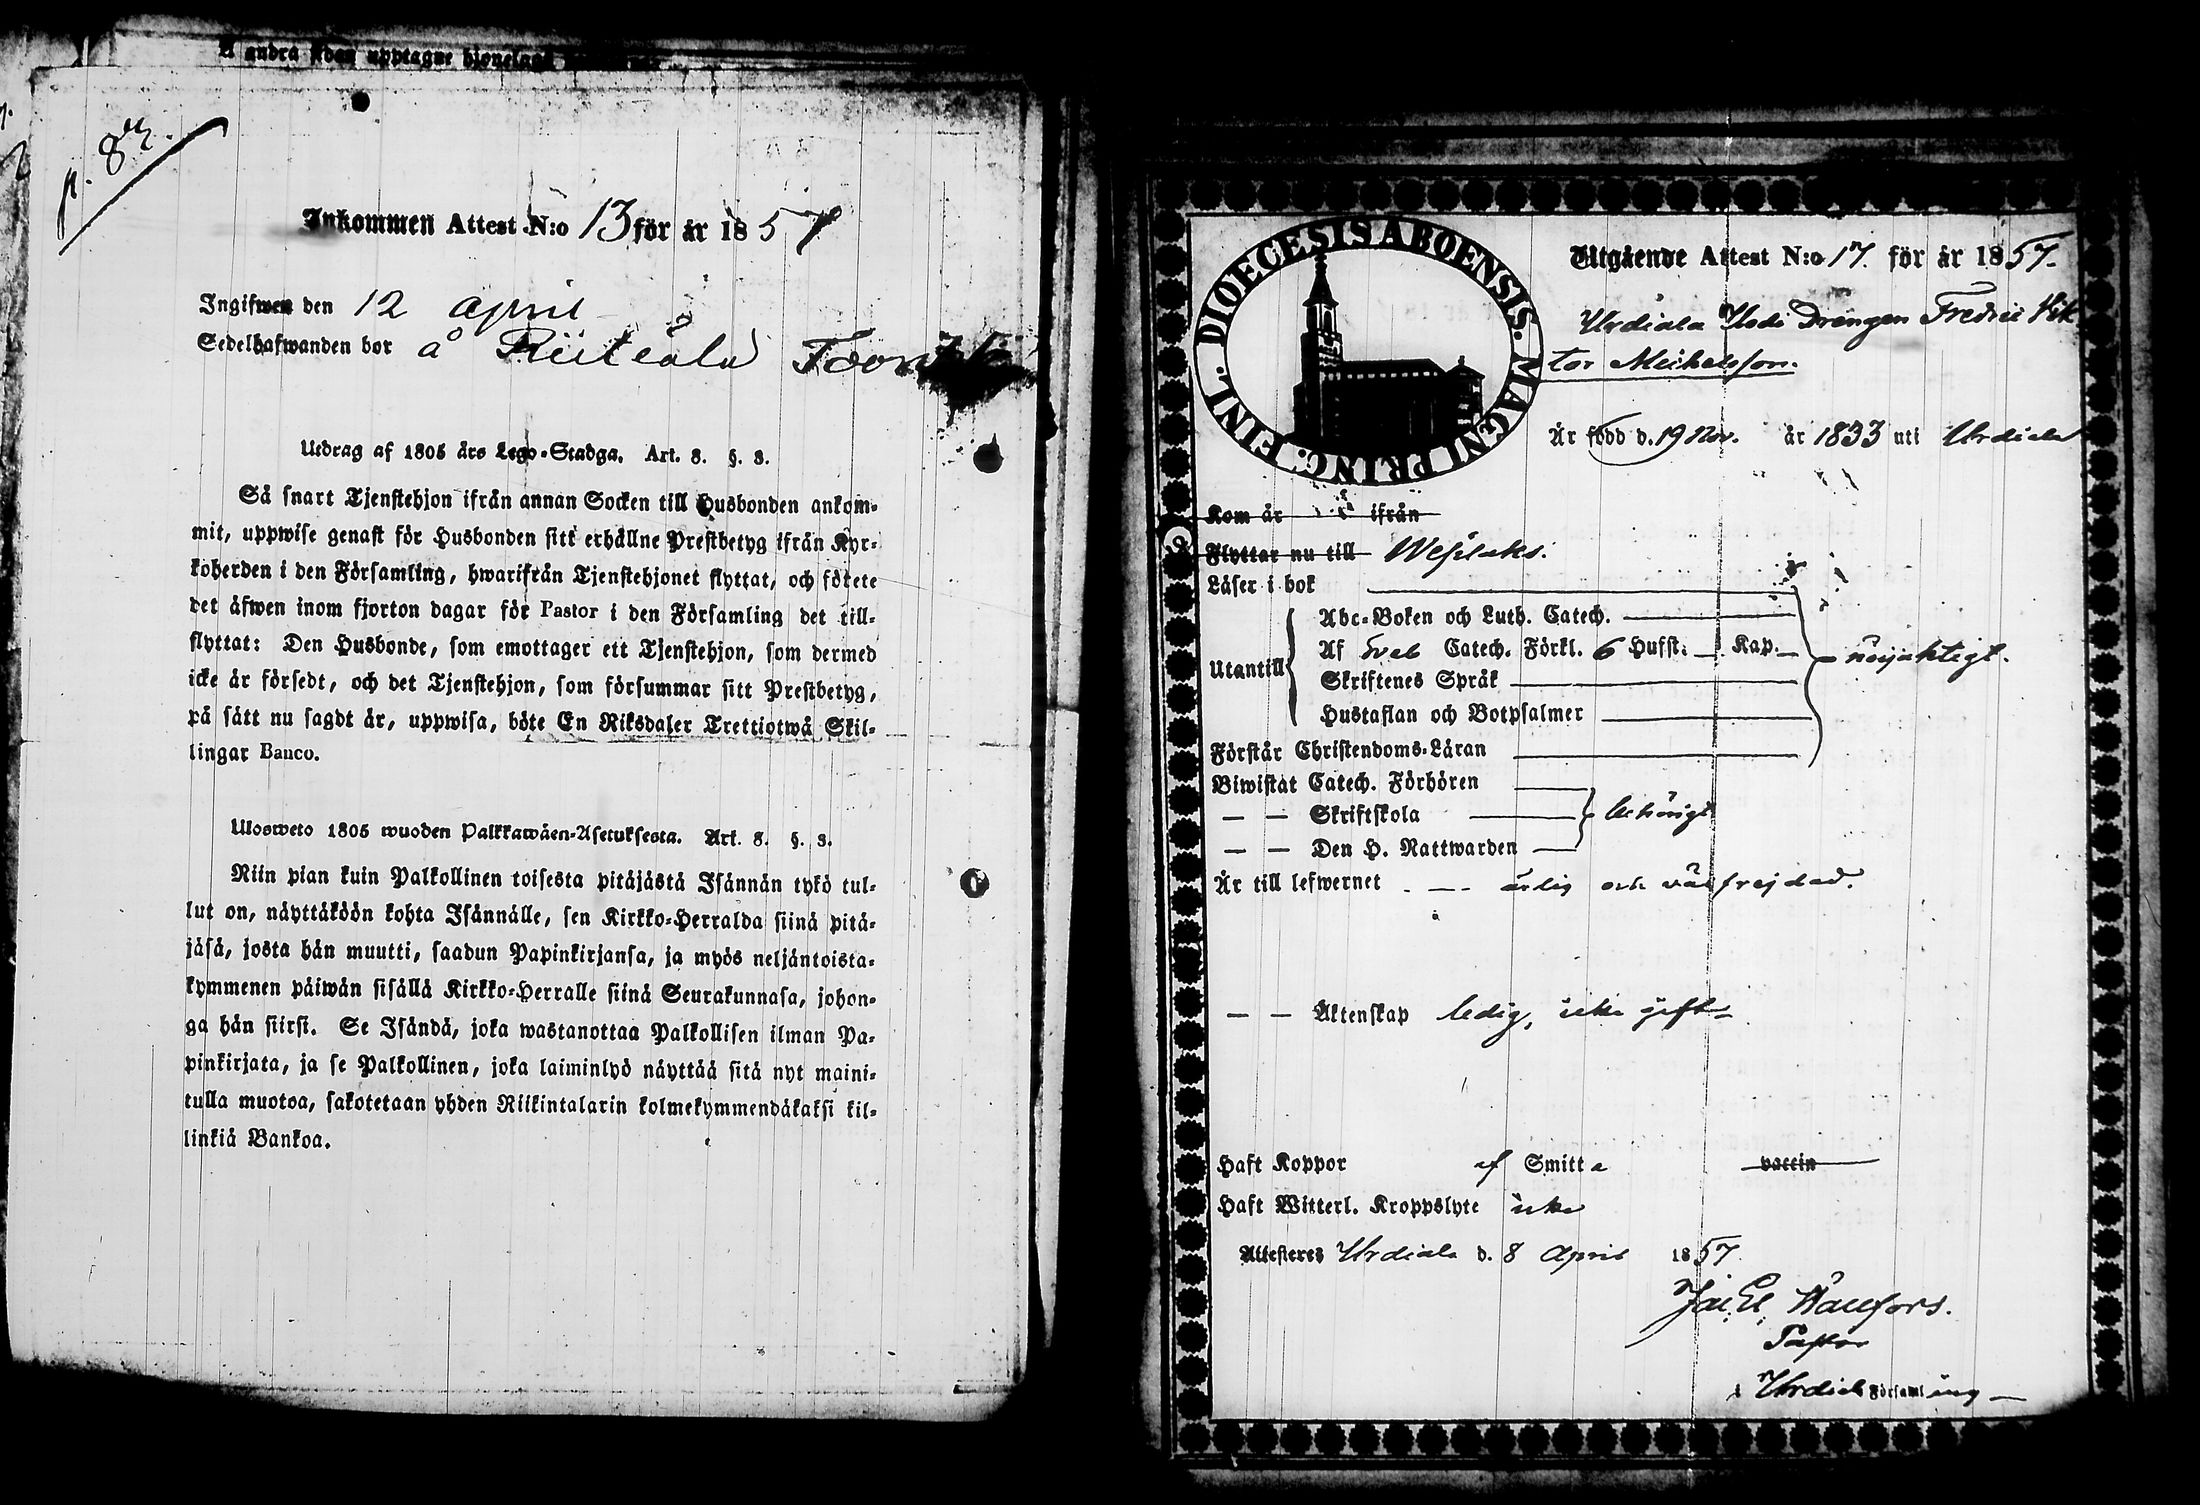 å andra sidan upptagne hjonelag
p. 83.
Inkommen Attest N:o 13 för år 1857
Ingifwen den 12 april
Sedelhafwanden bor å
Utdrag af 1805 års Lego-Stadga. Art. 8. §. 3.
Så snart Tjenstehjon ifrån annan Socken till Husbonden ankom-
mit, uppwise genast för Husbonden sitt erhållne Prestbetyg ifrån Kyr-
koherden i den Församling, hwarifrån Tjenstehjonet flyttat, och förete
det äfwen inom fjorton dagar för Pastor i den Församling det till-
flyttat: Den Husbonde, som emottager ett Tjenstehjon, som dermed
icke är försedt, och det Tjenstehjon, som försummar sitt Prestbetyg,
på sätt nu sagdt är, uppwisa, böte En Riksdaler Trettiotwå Skil-
lingar Banco.
Ulosweto 1805 wuoden Palkkawäen-Asetuksesta. Art. 8. §. 3.
Niin pian kuin Palkollinen toisesta pitäjästä Isännän tykö tul-
lut on, näyttäköön kohta Isännälle, sen Kirkko-Herralda siinä pitä-
jäsä, josta hän muutti, saadun Papinkirjansa, ja myös neljäntoista-
kymmenen päiwän sisällä Kirkko-Herralle siinä Seurakunnasa, johon-
ga hän siirsi. Se Isändä, joka wastanottaa Palkollisen ilman Pa-
pinkirjata, ja se Palkollinen, joka laiminlyö näyttää sitä nyt maini-
tulla muotoa, sakotetaan yhden Riikintalarin kolmekymmendäkaksi kil-
linkiä Bankoa.
DIOECESIS ABOENSIS. MAGNI PRINC. FINL.
Utgående Attest N:o 17. för år 1857.
Urdiala Drängen Fredric Vik
tor Michelsson.
Är född d. 19 Nov. år 1833 uti Urdiala
Kom år ifrån
Flyttar nu till Wesilaks.
Läser i bok
Abc-Boken och Luth. Catech.
Af Sveb Catech. Förkl. 6 Hufst. Kap.
Utantill
nöjaktigt.
Skriftenes Språk
Hustaflan och Botpsalmer
Förstår Christendoms-Läran
Biwistat Catech. Förhören
— — Skriftskola behörigt
— — Den H. Nattwarden
Är till lefwernet ärlig och väl frejdad.
— — Äktenskap ledig, icke gift
Haft Koppor af Smitta vaccin
Haft Witterl. Kroppslyte icke
Attesteres Urdiala d. 8 April 1857.
Pastor
i Urdiala Församling